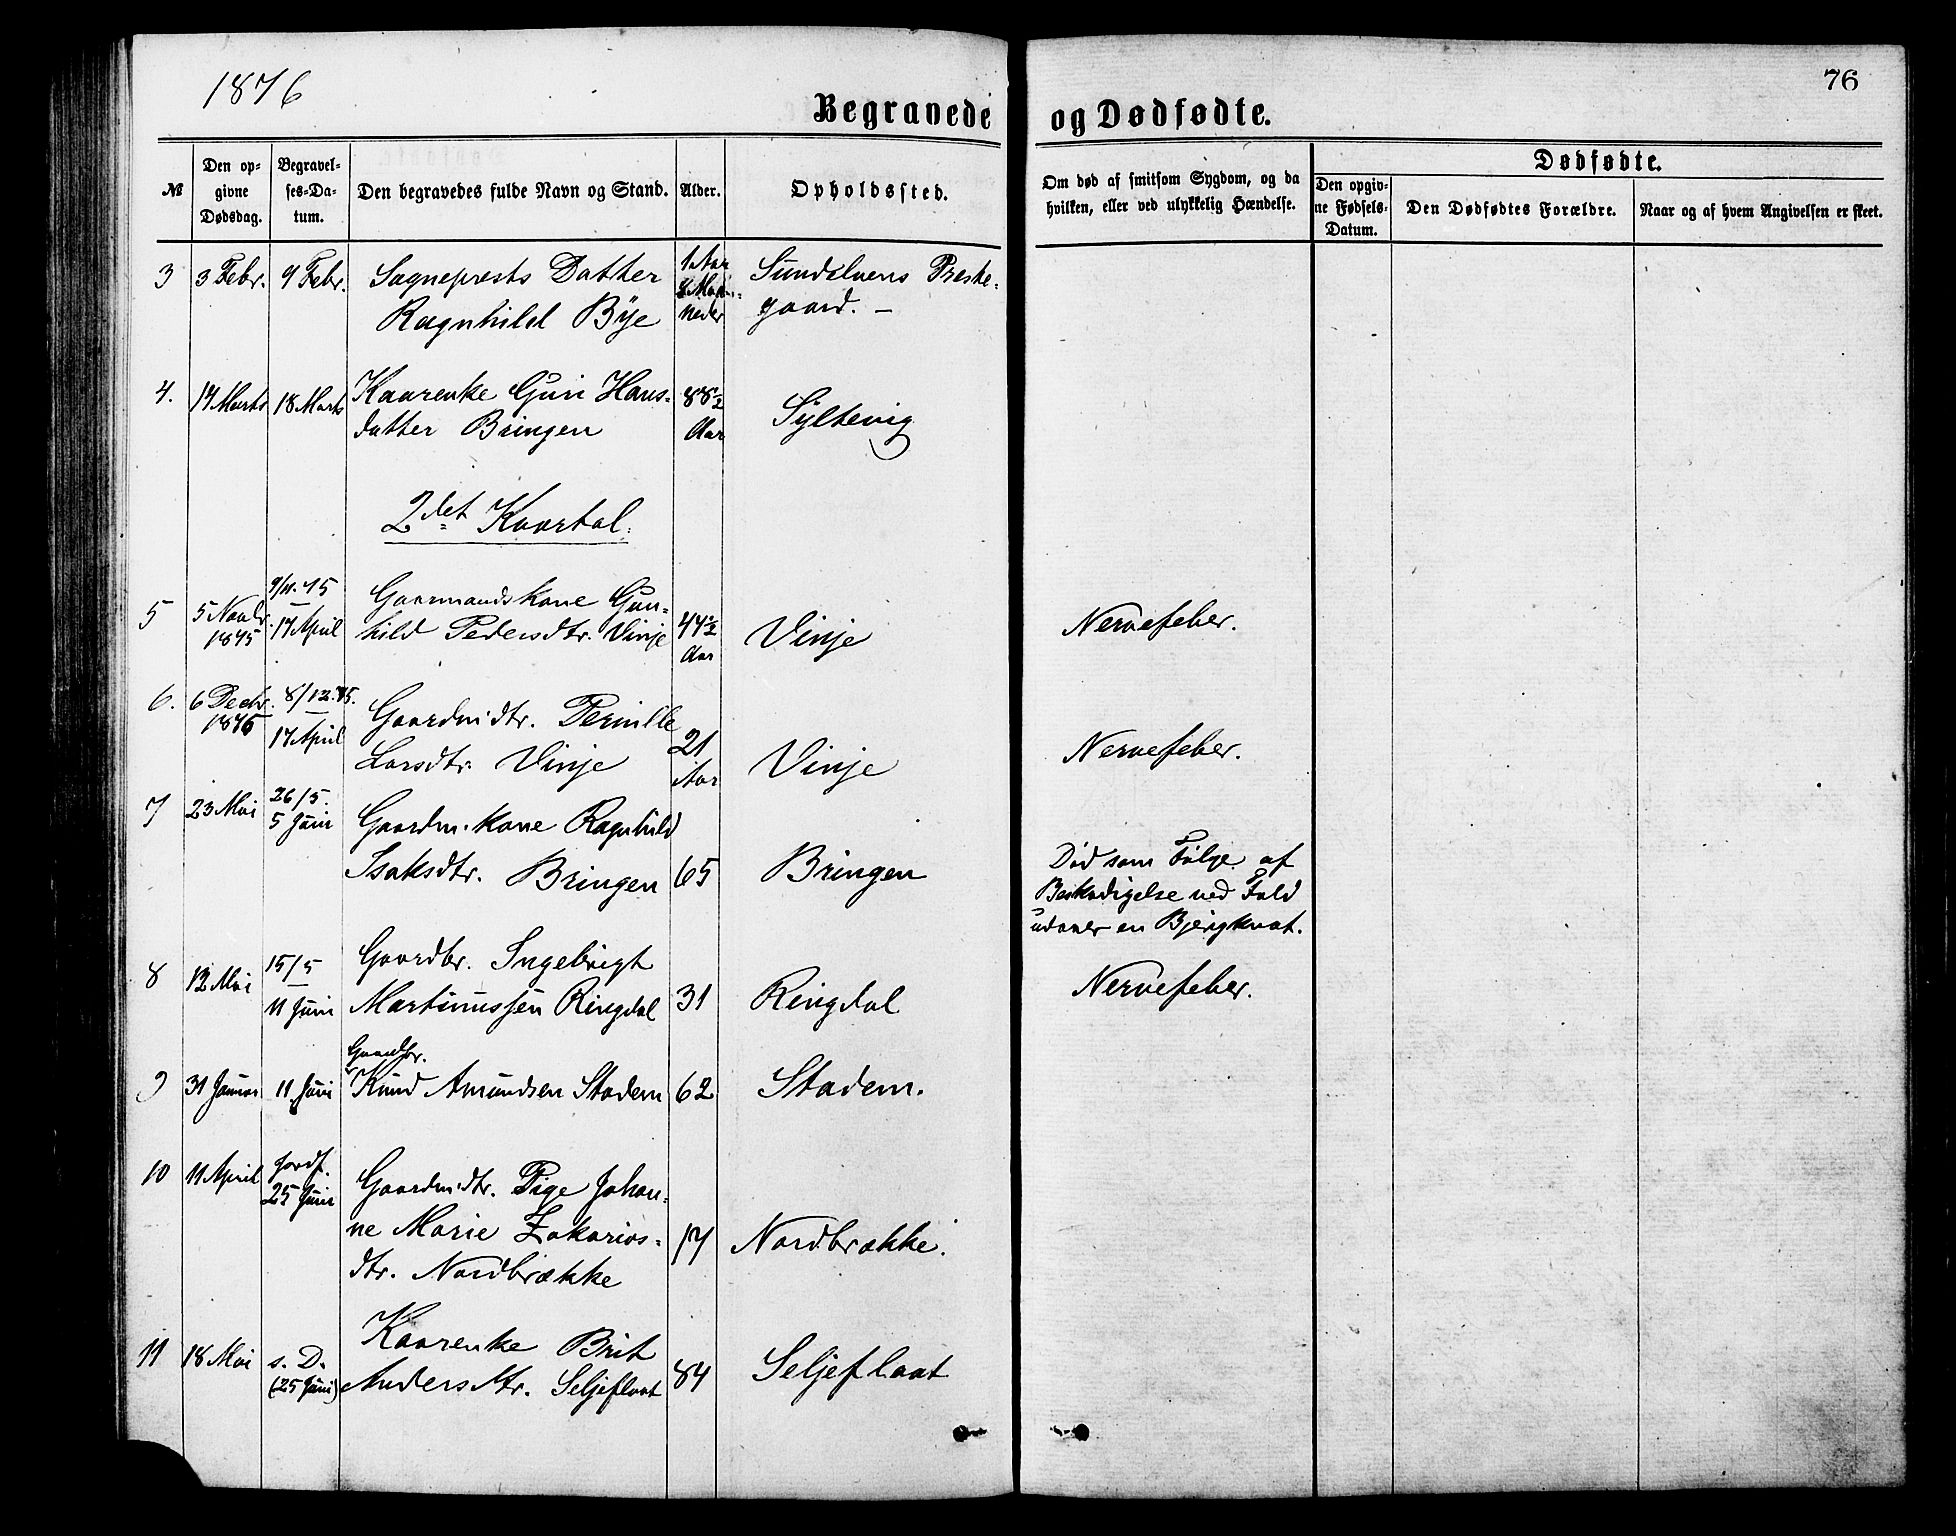 1876
76
Begravede og Dødfødte.
№
Den op-
givne
Dødsdag.
Begravel-
ses-Da-
tum.
Den begravedes fulde Navn og Stand.
Alder.
Opholdssted.
Om død af smitsom Sygdom, og da
hvilken, eller ved ulykkelig Hændelse.
Dødfødte.
Den opgiv-
ne Fødsels-
Datum.
Den Dødfødtes Forældre.
Naar og af hvem Angivelsen er skeet.
3 3 Febr. 9 Febr. Sogneprests Datter 1 Aar Sundalvens Preste-
Ragnhild Bÿe neder gaard. —
4. 17 Marts 18 Marts Kaarenke Guri Hans- 88½ Syltevig
datter Bringen Aar
2det Kvartal.
9/11. 75
5 5 Novbr. 17 April Gaarmandskone Gun- 44½ Vinje Nervefeber.
1875 hild Pedersdtr. Vinje Aar
6. 6 Decbr. 8/12.75. Gaardm:dtr. Pernille 21 Vinje Nervefeber.
1875 17 April Larsdtr. Vinje Aar
7 23 Mai 26/5. Gaardm.kone Ragnhild
5 Juni Isaksdtr. Bringen 65 Bringen Død som Følge af
Beskadigelse ved Fald
udover en Bjergknat.
8 12 Mai 15/5 Gaardbr. Ingebrigt Nervefeber.
11 Juni Martinussen Ringdal 31 Ringdal
Gaardbr.
9 31 Januar 11 Juni Knud Amundsen Stadem 62 Stadem.
10 11 April Jordf. Gaardm:dtr. Pige Johan-
25 Juni ne Marie Zakarias- 17 Nordbrække.
dtr. Nordbrække
11 18 Mai s. D. Kaarenke Brit 84 Seljeflaat
(25 Juni) Andersdtr. Seljeflaat